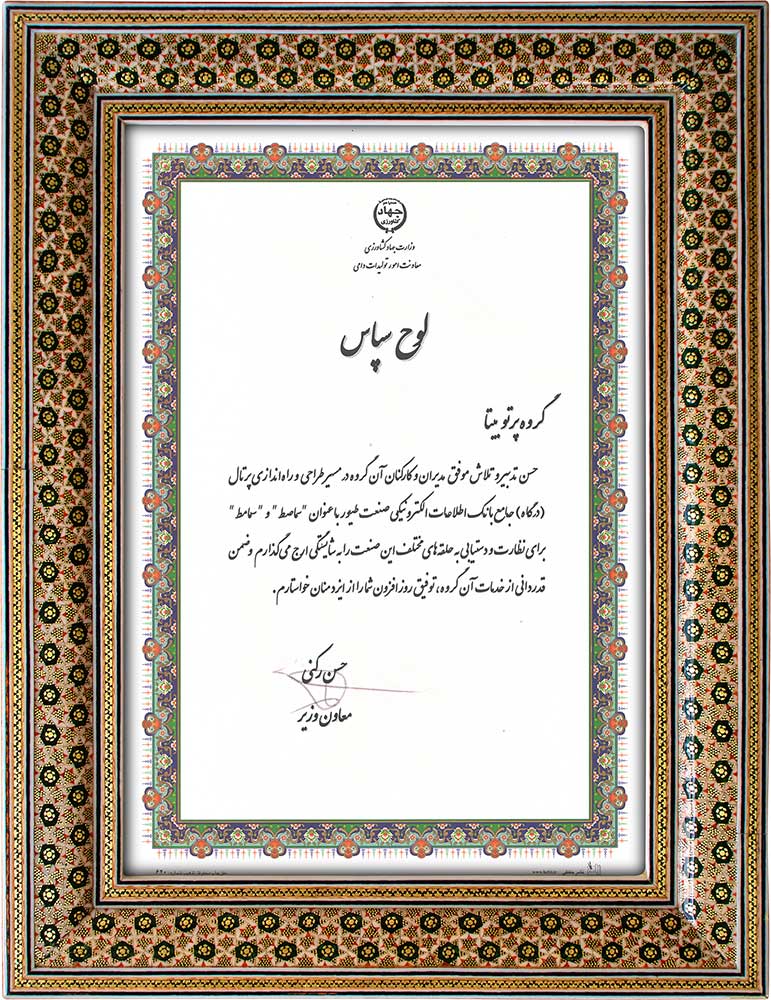 جهاد
کشاورزی
وزارت جهاد کشاورزی
معاونت امور تولیدات دامی
لوح سپاس
گروه پرتو بیتا
حسن تدبیر و تلاش موفق مدیران و کارکنان آن گروه در مسیر طراحی و راه اندازی پرتال
(درگاه) جامع بانک اطلاعات الکترونیکی صنعت طیور با عنوان "سماصط" و "سمامط"
برای نظارت و دستیابی به حلقه های مختلف این صنعت را به شایستگی ارج می گذارم و ضمن
قدردانی از خدمات آن گروه، توفیق روز افزون شما را از ایزد منان خواستارم.
حسن رکنی
معاون وزیر